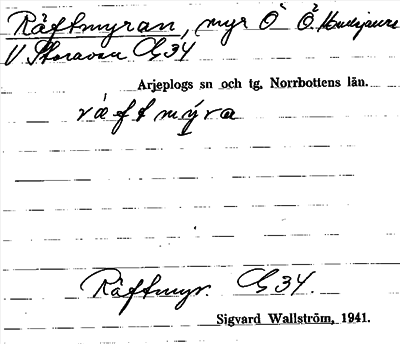 Räftmyran, myr O Ö.
V Storavan G34
Arjeplogs sn och tg, Norrbottens län.
räftmýra
Räftmyr. G34.
Sigvard Wallström, 1941.